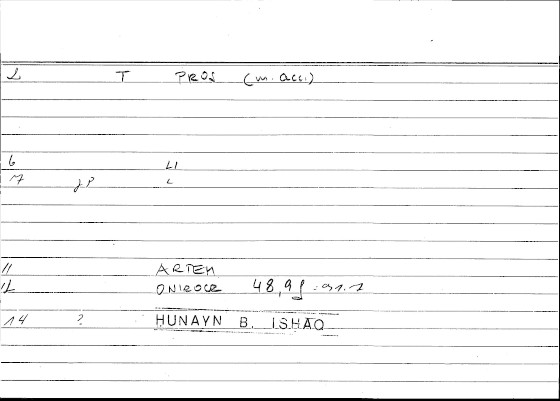 T PROS (m. acc.)
6 LI
7 JP L
11 ARTEM
12 ONIROCR 48,9
14 ? HUNAYN B. ISHAQ